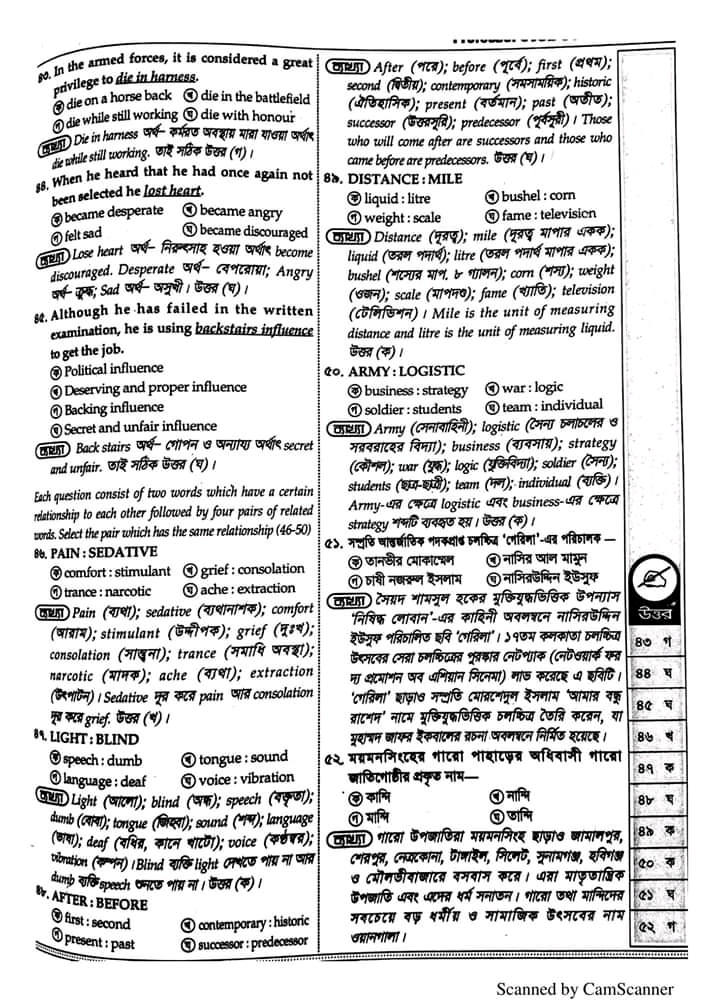 ৪৩. In the armed forces, it is considered a great
privilege to die in harness.
ক die on a horse back খ die in the battlefield
গ die while still working ঘ die with honour
ব্যাখ্যা Die in harness অর্থ- কর্মরত অবস্থায় মারা যাওয়া অর্থাৎ
die while still working. তাই সঠিক উত্তর (গ)।
৪৪. When he heard that he had once again not
been selected he lost heart.
ক became desperate খ became angry
গ felt sad ঘ became discouraged
ব্যাখ্যা Lose heart অর্থ- নিরুৎসাহ হওয়া অর্থাৎ become
discouraged. Desperate অর্থ- বেপরোয়া; Angry
অর্থ- ক্রুদ্ধ; Sad অর্থ- অসুখী। উত্তর (ঘ)।
৪৫. Although he has failed in the written
examination, he is using backstairs influence
to get the job.
ক Political influence
খ Deserving and proper influence
গ Backing influence
ঘ Secret and unfair influence
ব্যাখ্যা Back stairs অর্থ- গোপন ও অন্যায্য অর্থাৎ secret
and unfair. তাই সঠিক উত্তর (ঘ)।
Each question consist of two words which have a certain
relationship to each other followed by four pairs of related
words. Select the pair which has the same relationship (46-50)
৪৬. PAIN : SEDATIVE
ক comfort : stimulant খ grief : consolation
গ trance : narcotic ঘ ache : extraction
ব্যাখ্যা Pain (ব্যথা); sedative (ব্যথানাশক); comfort
(আরাম); stimulant (উদ্দীপক); grief (দুঃখ);
consolation (সান্ত্বনা); trance (সমাধি অবস্থা);
narcotic (মাদক); ache (ব্যথা); extraction
(উৎপাটন)। Sedative দূর করে pain আর consolation
দূর করে grief. উত্তর (খ)।
৪৭. LIGHT : BLIND
ক speech : dumb খ tongue : sound
গ language : deaf ঘ voice : vibration
ব্যাখ্যা Light (আলো); blind (অন্ধ); speech (বক্তৃতা);
dumb (বোবা); tongue (জিহ্বা); sound (শব্দ); language
(ভাষা); deaf (বধির, কানে খাটো); voice (কণ্ঠস্বর);
vibration (কম্পন)। Blind ব্যক্তি light দেখতে পায় না আর
dumb ব্যক্তি speech শুনতে পায় না। উত্তর (ক)।
৪৮. AFTER : BEFORE
ক first : second খ contemporary : historic
গ present : past ঘ successor : predecessor
ব্যাখ্যা After (পরে); before (পূর্বে); first (প্রথম);
second (দ্বিতীয়); contemporary (সমসাময়িক); historic
(ঐতিহাসিক); present (বর্তমান); past (অতীত);
successor (উত্তরসূরি); predecessor (পূর্বসূরী)। Those
who will come after are successors and those who
came before are predecessors. উত্তর (ঘ)।
৪৯. DISTANCE : MILE
ক liquid : litre খ bushel : corn
গ weight : scale ঘ fame : television
ব্যাখ্যা Distance (দূরত্ব); mile (দূরত্ব মাপার একক);
liquid (তরল পদার্থ); litre (তরল পদার্থ মাপার একক);
bushel (শস্যের মাপ, ৮ গ্যালন); corn (শস্য); weight
(ওজন); scale (মাপদণ্ড); fame (খ্যাতি); television
(টেলিভিশন)। Mile is the unit of measuring
distance and litre is the unit of measuring liquid.
উত্তর (ক)।
৫০. ARMY : LOGISTIC
ক business : strategy খ war : logic
গ soldier : students ঘ team : individual
ব্যাখ্যা Army (সেনাবাহিনী); logistic (সৈন্য চলাচলের ও
সরবরাহের বিদ্যা); business (ব্যবসায়); strategy
(কৌশল); war (যুদ্ধ); logic (যুক্তিবিদ্যা); soldier (সৈন্য);
students (ছাত্র-ছাত্রী); team (দল); individual (ব্যক্তি)।
Army-এর ক্ষেত্রে logistic এবং business-এর ক্ষেত্রে
strategy শব্দটি ব্যবহৃত হয়। উত্তর (ক)।
৫১. সম্প্রতি আন্তর্জাতিক পদকপ্রাপ্ত চলচ্চিত্র 'গেরিলা'-এর পরিচালক —
ক তানভীর মোকাম্মেল খ নাসির আল মামুন
গ চাষী নজরুল ইসলাম ঘ নাসিরউদ্দিন ইউসুফ
ব্যাখ্যা সৈয়দ শামসুল হকের মুক্তিযুদ্ধভিত্তিক উপন্যাস
'নিষিদ্ধ লোবান'-এর কাহিনী অবলম্বনে নাসিরউদ্দিন
ইউসুফ পরিচালিত ছবি 'গেরিলা'। ১৭তম কলকাতা চলচ্চিত্র
উৎসবের সেরা চলচ্চিত্রের পুরস্কার নেটপ্যাক (নেটওয়ার্ক ফর
দ্য প্রমোশন অব এশিয়ান সিনেমা) লাভ করেছে এ ছবিটি।
'গেরিলা' ছাড়াও সম্প্রতি মোরশেদুল ইসলাম 'আমার বন্ধু
রাশেদ' নামে মুক্তিযুদ্ধভিত্তিক চলচ্চিত্র তৈরি করেন, যা
মুহাম্মদ জাফর ইকবালের রচনা অবলম্বনে নির্মিত হয়েছে।
৫২. ময়মনসিংহের গারো পাহাড়ের অধিবাসী গারো
জাতিগোষ্ঠীর প্রকৃত নাম—
ক কান্দি খ নান্দি
গ মান্দি ঘ তান্দি
ব্যাখ্যা গারো উপজাতিরা ময়মনসিংহ ছাড়াও জামালপুর,
শেরপুর, নেত্রকোনা, টাঙ্গাইল, সিলেট, সুনামগঞ্জ, হবিগঞ্জ
ও মৌলভীবাজারে বসবাস করে। এরা মাতৃতান্ত্রিক
উপজাতি এবং এদের ধর্ম সনাতন। গারো তথা মান্দিদের
সবচেয়ে বড় ধর্মীয় ও সামাজিক উৎসবের নাম
ওয়ানগালা।
উত্তর
৪৩ গ
৪৪ ঘ
৪৫ ঘ
৪৬ খ
৪৭ ক
৪৮ ঘ
৪৯ ক
৫০ ক
৫১ ঘ
৫২ গ
Scanned by CamScanner